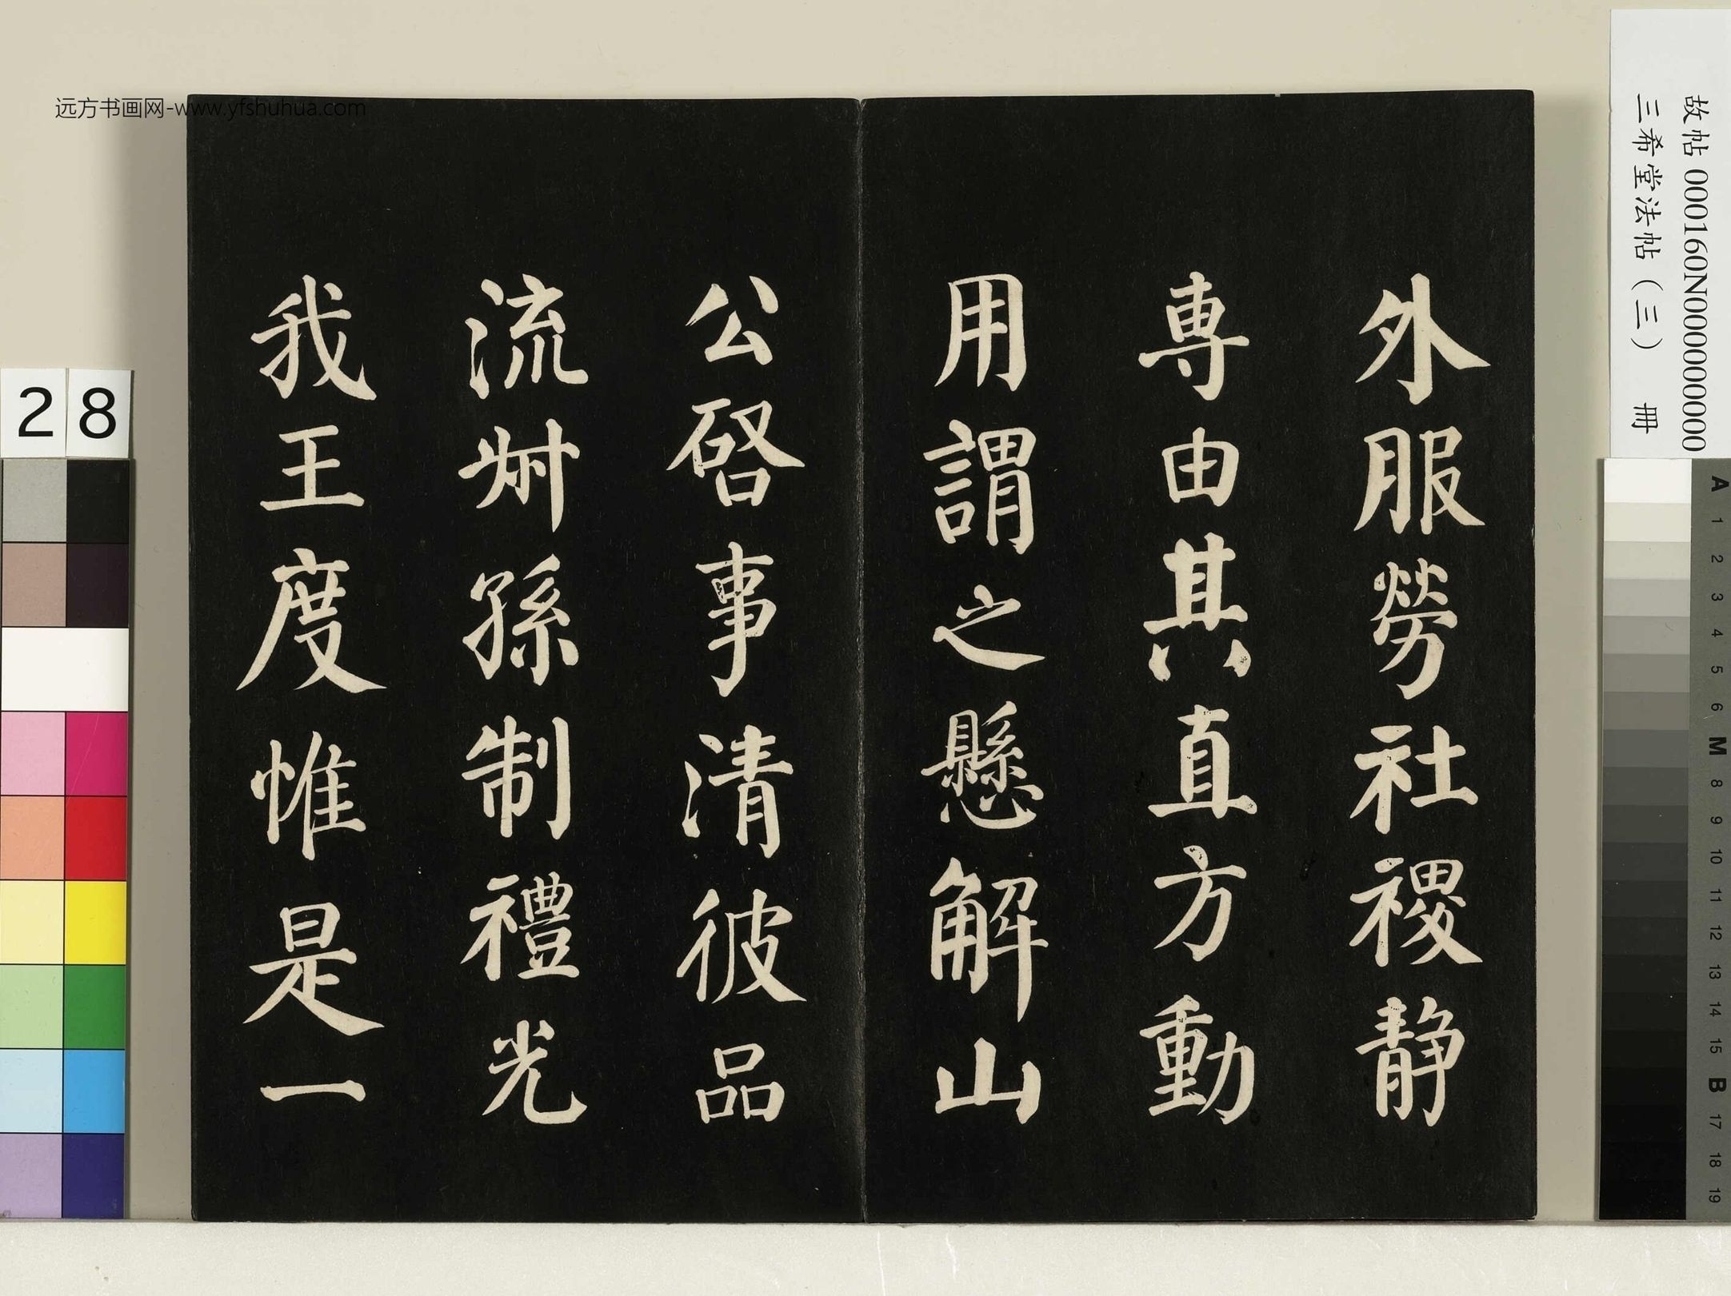 外服勞社稷静
専由其直方動
用謂之懸解山
公啓事清彼品
流州孫制禮光
我王度惟是一
远方书画网-www.yfshuhua.com
28
故帖 000160N000000000
三希堂法帖（三） 冊
A 1 2 3 4 5 6 M 8 9 10 11 12 13 14 15 B 17 18 19